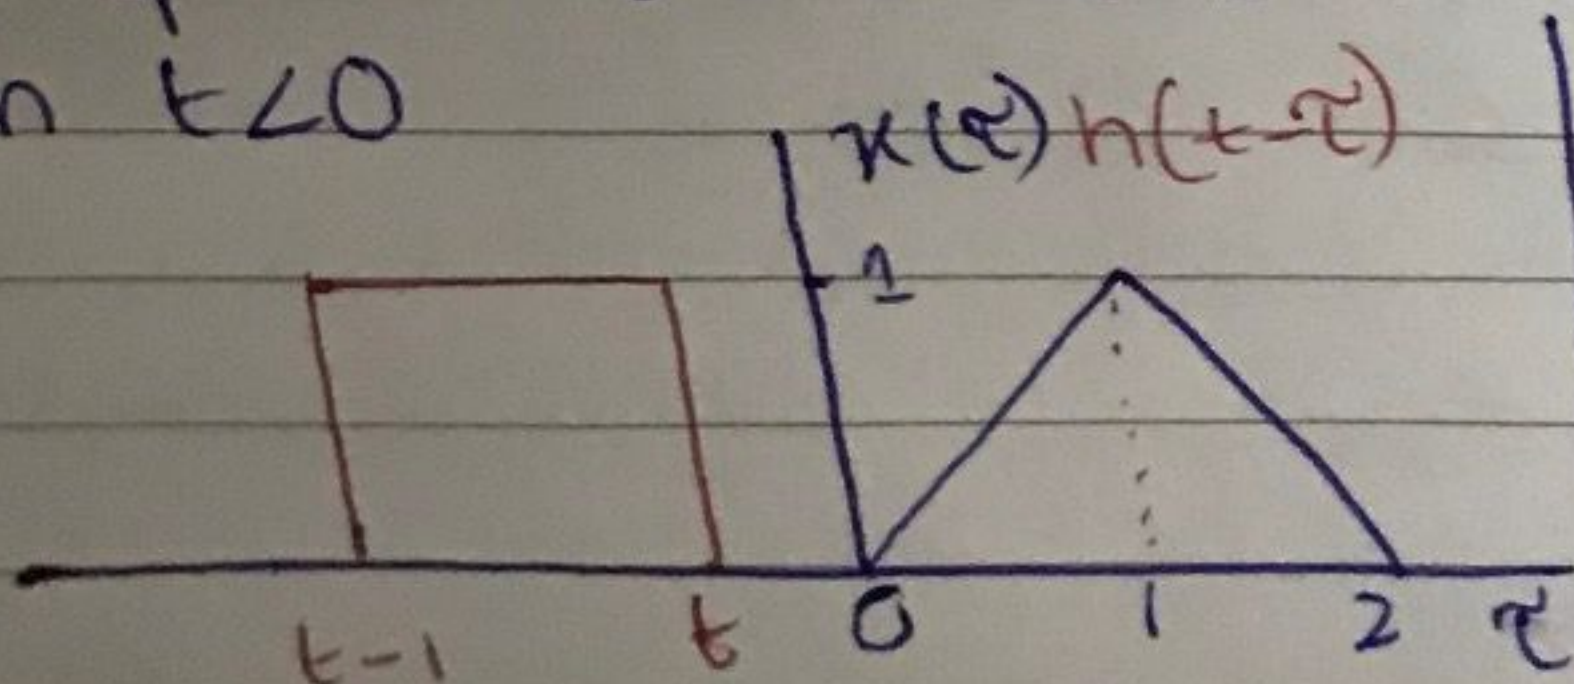 n t<0
x(τ) h(t-τ)
1
t-1 t 0 1 2 τ